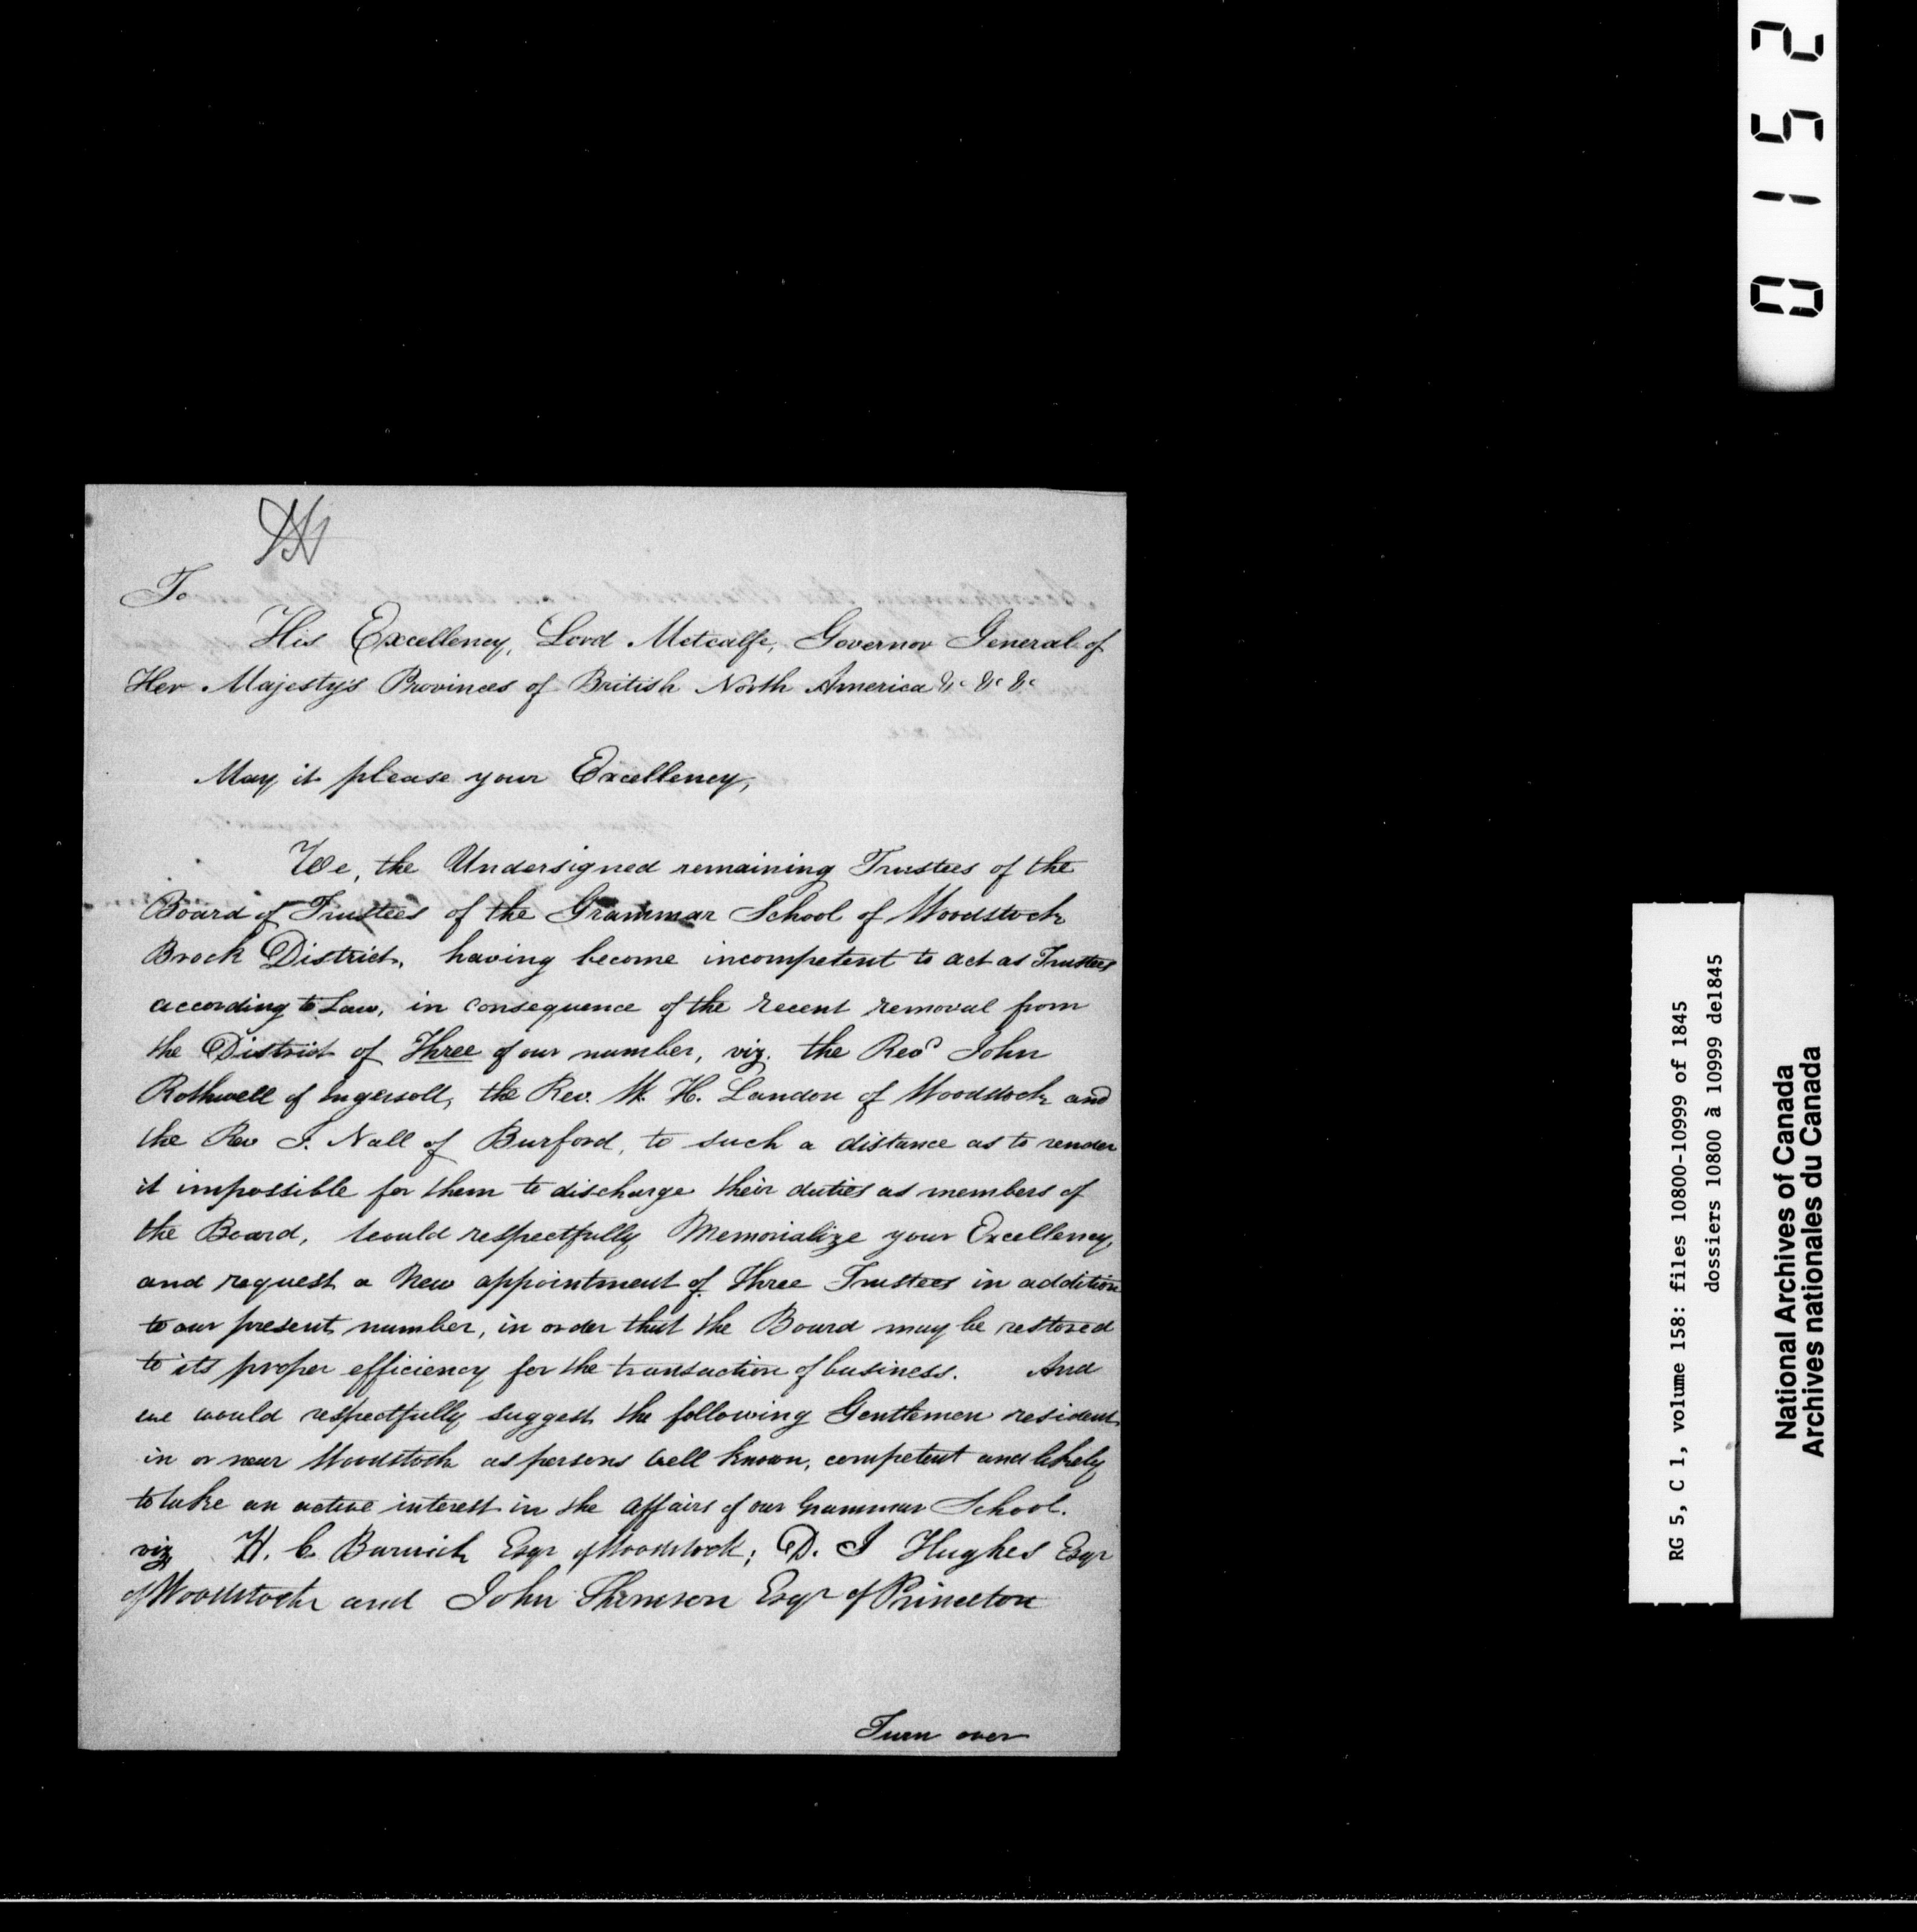 To
His Excellency, Lord Metcalfe, Governor General of
Her Majesty's Provinces of British North America &c &c &c
May it please your Excellency,
We, the Undersigned remaining Trustees of the
Board of Trustees of the Grammar School of Woodstock
Brock District, having become incompetent to act as Trustees
according to Law, in consequence of the recent removal from
the District of Three of our number, viz. the Revd John
Rothwell of Ingersoll, the Rev. W. H. Landon of Woodstock and
the Rev J. Nall of Burford, to such a distance as to render
it impossible for them to discharge their duties as members of
the Board, would respectfully Memorialize your Excellency,
and request a New appointment of Three Trustees in addition
to our present number, in order that the Board may be restored
to its proper efficiency for the transaction of business. And
we would respectfully suggest the following Gentlemen resident
in or near Woodstock as persons well known, competent and likely
to take an active interest in the affairs of our Grammar School.
viz H. C. Barwick Esqr of Woodstock; D. J Hughes Esqr
of Woodstock and John Esqr of Princeton
Turn over
0152
RG 5, C 1, volume 158: files 10800-10999 of 1845
dossiers 10800 à 10999 de1845
National Archives of Canada
Archives nationales du Canada